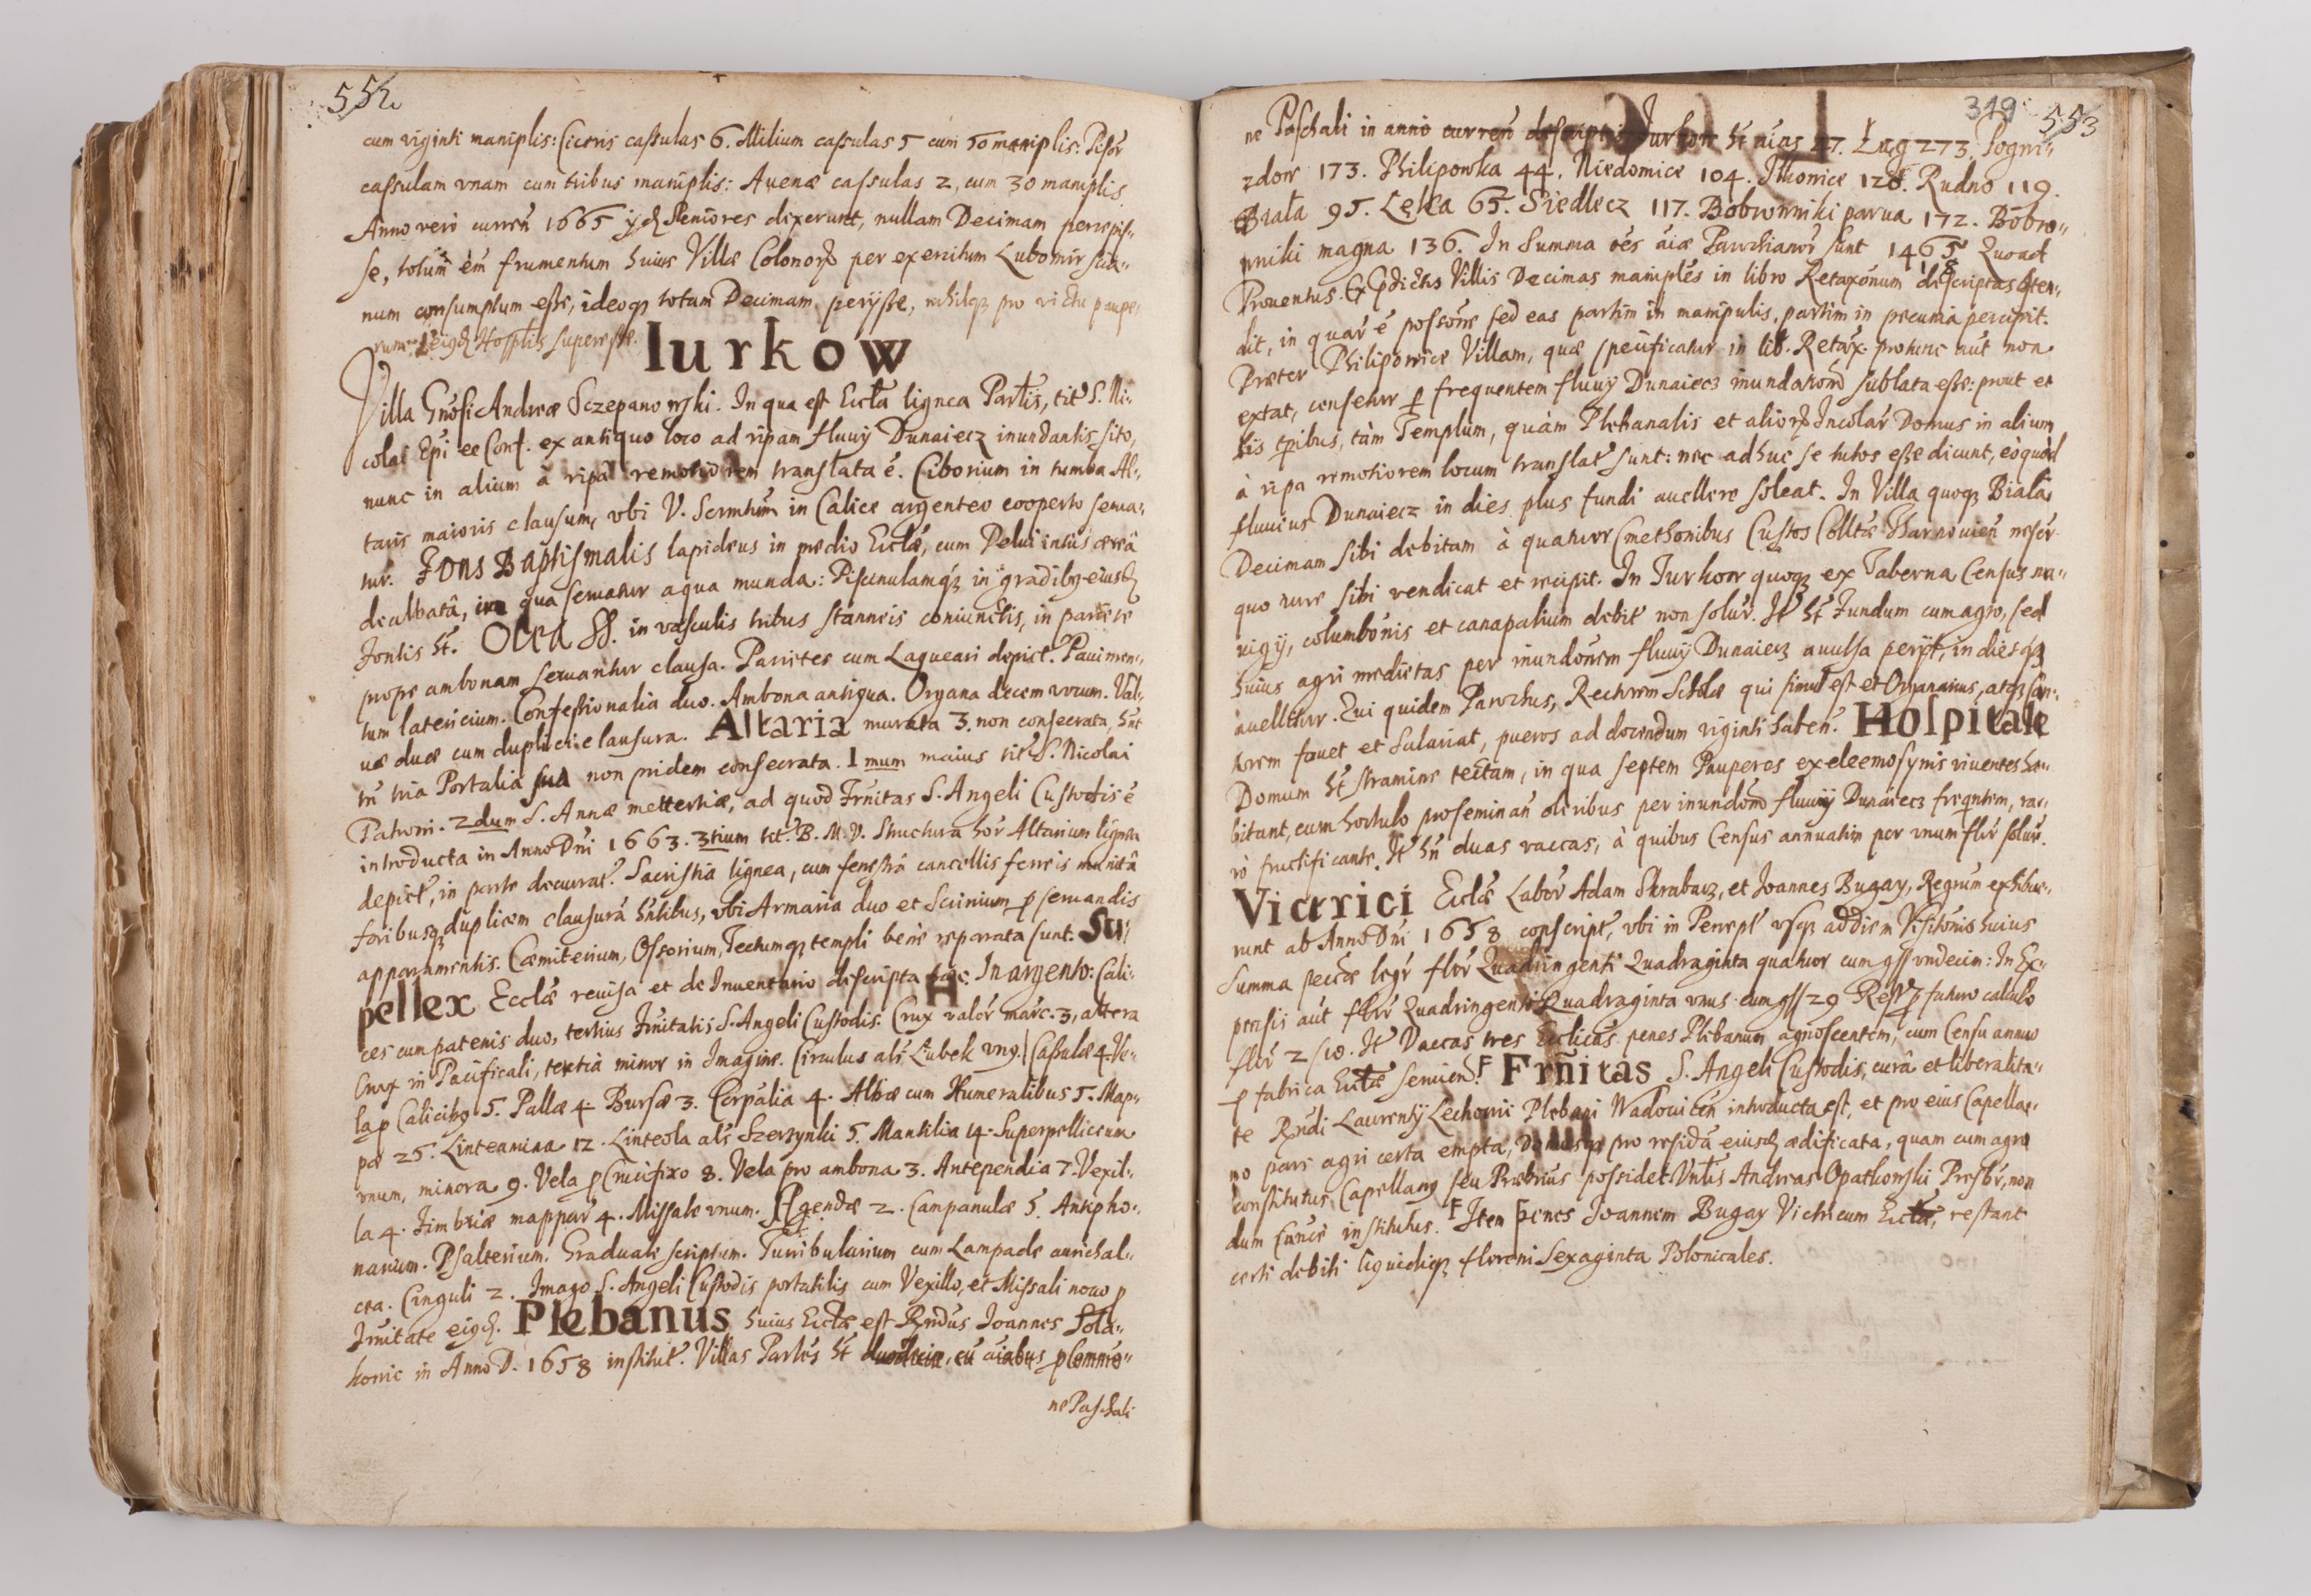 552
cum viginti maniplis: Ciceris cassulas 6. Milium cassulas 5 cum 50 maniplis: Pisoř
cassulam vnam cum tribus maniplis: Auenæ cassulas 2, cum 30 maniplis.
Anno vero curreñ 1665 Seniores dixerunt, nullam Decimam percepis-
se, totum em̃ frumentum huius Villæ Colonoꝝ per exercitum Lubomirscia-
num consumptum esse, ideoqꝫ totam Decimam perijsse, nihilqꝫ pro victu paupe-
rum Hosplis superesse.
Iurkow
Villa Gñosi Andreæ Sczepanowski. In qua est Eccła lignea Parłis, tiť S. Ni-
colai Epi et Conf. ex antiquo loco ad ripam fluuij Dunaiecz inundantis sito,
nunc in alium à ripa remotiorem translata é. Ciborium in tumba Al-
taris maioris clausum, vbi V. Scrmtum in Calice argenteo cooperto serua-
tur. Fons Baptismalis lapideus in medio Ecclæ, cum Pelui intus æreâ
dealbatâ, in qua seruatur aqua munda: Piscinulamqꝫ in gradibꝰ eiusꝺ
Fontis ht. Olea SS. in vasculis tribus stanneis coniunctis, in pariete
prope ambonam seruantur clausa. Parietes cum Laqueari depict. Pauimen-
tum latericium. Confessionalia duo. Ambona antiqua. Organa decem vocum. Val-
uæ duæ cum duplici clausura. Altaria murata 3. non consecrata, hnt
tñ tria Portalia sua non pridem consecrata. 1mum maius tiť S. Nicolai
Patroni. 2dum S. Annæ mettertiæ, ad quod Frnitas S. Angeli Custodis é
introducta in Anno Dñi 1663. 3tium tit. B. M. V. Structura hor Altarium lignea
depict, in parte deaurat. Sacristia lignea, cum fenestrâ cancellis ferreis munitâ
foribusqꝫ duplicem clausurâ hntibus, vbi Armaria duo et Scrinium ꝓ seruandis
apparamentis. Cæmiterium, Ossorium, Tectumqꝫ templi bene reparata sunt. Su-
pellex Ecclæ reuisa et de Inuentario descripta hæc. In argento: Cali-
ces cum patenis duo, tertius Frnitatis S. Angeli Custodis. Crux valor marc. 3, altera
Crux in Pacificali, tertia minor in Imagine. Circulus als Lubek vnꝰ. Casulæ 4. Ve-
la ꝓ Calicibꝰ 5. Pallæ 4. Bursæ 3. Corpalia 4. Albæ cum Humeralibus 5. Map-
pæ 25. Linteamina 12. Linteola als Szerzynki 5. Mantilia 14. Superpelliceum
vnum, minora 9. Vela ꝓ Crucifixo 8. Vela pro ambona 3. Antependia 7. Vexil-
la 4. Fimbriæ mappar 4. Missale vnum. Agendæ 2. Campanulæ 5. Antipho-
narium. Psalterium. Graduale scriptum. Turribularium cum Lampade aurichal-
cea. Cinguli 2. Imago S. Angeli Custodis portatilis cum Vexillo, et Missali nouo ꝓ
Frnitate eiꝰꝺ. Plebanus huius Ecclæ est Rndus Ioannes Sola-
howic in Anno D. 1658 institut. Villas Parłes ht duodecim, cũ aiabus ꝓ Commo-
ne Paschali
349 553
ne Paschali in anno curreñ descriptis: Iurkow ht aias 27. Łęg 273. Pogwi-
zdow 173. Philipowka 44. Niedomice 104. Ilkowice 128. Rudno 119.
Biała 95. Lęka 65. Siedlecz 117. Bobrowniki parua 172. Bobro-
wniki magna 136. In Summa oes aiæ Parochianor sunt 1465 Quoad
Prouentus. Ex pdictis Villis Decimas maniples in libro Retaxonum descriptas osten-
dit, in quar é possone sed eas partim in manipulis, partim in pecunia percipit.
Præter Philipowice Villam, quæ specificatur in lib. Retax. protunc aut non
extat, censetur ꝑ frequentem fluuij Dunaiecz inundationem sublata esse: prout et
his tpibus, tàm Templum, quàm Plebanalis et alioꝝ Incolar Domus in alium
à ripa remotiorem locum translat sunt: nec adhuc se tutos esse dicunt, eò quòd
fluuius Dunaiecz in dies plus fundi auellere soleat. In Villa quoqꝫ Biała
Decimam sibi debitam à quatuor Cmethonibus Custos Colltæ Tharnouieñ nescr
quo iure sibi vendicat et recipit. In Iurkow quoqꝫ ex Taberna Census na-
uigij, columbonis et canapalium debit non solur. It ht Fundum cum agro, sed
huius agri medietas per inundonem fluuij Dunaiecz auulsa perijt, in diesqꝫ
auellitur. Qui quidem Parochus, Rectorem Scholæ qui simul est et Organarius, atqꝫ Can-
torem fouet et Salariat, pueros ad docendum viginti haben. Hospitale
Domum ht stramine tectam, in qua septem Pauperes ex eleemosynis viuentes ha-
bitant, cum hortulo proseminan oleribus per inundom fluuij Dunaiecz freqntem, rar-
rò fructificante. It hñ duas vaccas, à quibus Census annuatim per vnum flor solur.
Vitrici Ecclæ Labor Adam Skrabacz, et Ioannes Bugay, Regrum exhibue-
runt ab Anno Dñi 1658 conscript, vbi in Percept vsqꝫ ad diem Visitonis huius
Summa pecciæ legr flor Quadringenti Quadraginta quatuor cum gss vndecim: In Ex-
pensis aut flor Quadringenti Quadraginta vnus cum gss 29 Rest ꝓ futuro calculo
flor 2/10. It Vaccas tres Ecclicas penes Plebanum agnoscentem, cum Censu annuo
ꝓ fabrica Ecclæ seruien. Frñitas S. Angeli Custodis, curâ et liberalita-
te Rndi Laurentij Lechowic Plebani Wadouiceñ introducta est, et pro eius Capella-
no pars agri certa empta, Domusqꝫ pro residã eiusꝺ ædificata, quam cum agro
constitutus Capellanꝰ seu Præbrius possidet Vnłis Andreas Opatkowski Presbr, non
dum Cance institutus. Item penes Ioannem Bugay Victricum Ecclæ, restant
certi debiti liquidiqꝫ floreni Sexaginta Polonicales.